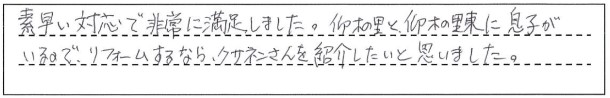 素早い対応で非常に満足しました。仰木の里と仰木の里東に息子が
いるので、リフォームするなら、クサネンさんを紹介したいと思いました。